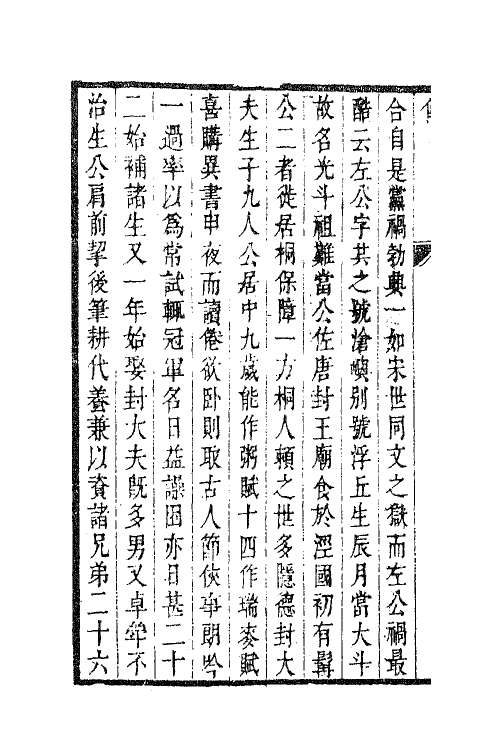 合自是黨禍勃興一如宋世同文之獄而左公禍最
酷云左公字共之號滄嶼別號浮丘生辰月當大斗
故名光斗祖難當公佐唐封王廟食於涇國初有
公二者徙居桐保障一方桐人賴之世多隱德封大
夫生子九人公居中九歲能作粥賦十四作瑞麥賦
喜購異書申夜而讀倦欲臥則取古人節俠事朗吟
一過率以爲常試輒冠軍名日益譟困亦日甚二十
二始補諸生又一年始娶封大夫旣多男又卓犖不
治生公肩前挈後筆耕代養兼以資諸兄弟二十六